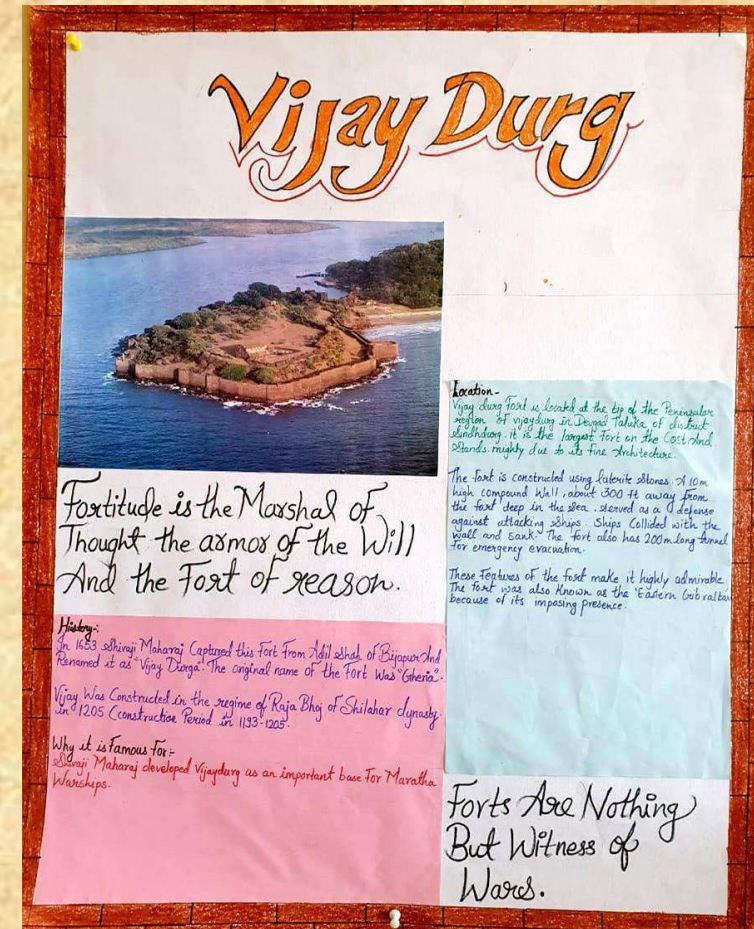 Vijay Durg
Fortitude is the Marshal of
Thought the armor of the Will
And the Fort of reason.
History-:
In 1653 Shivaji Maharaj Captured this Fort From Adil Shah of Bijapur And
Renamed it as "Vijay Durga". The original name of the Fort Was "Gheria".
Vijay Was Constructed in the regime of Raja Bhoj of Shilahar dynasty
in 1205 (construction Period in 1193-1205.
Why it is Famous For:-
Shivaji Maharaj developed Vijaydurg as an important base For Maratha
Warships.
Location-
Vijay durg Fort is located at the tip of the Peninsular
region of vijaydurg in Devgad Taluka of district
Sindhdurg. it is the largest Fort on the Cost And
Stands mighty due to its Fine Architecture.
The fort is constructed using laterite Stones. A 10m
high compound Wall, about 300 ft away from
the fort deep in the sea served as a defense
against attacking ships. Ships Collided with the
wall and Sank. The fort also has 200m long tunnel
For emergency evacuation.
These Features of the fort make it highly admirable
The fort was also Known as the "Eastern
because of its imposing presence.
Forts Are Nothing
But Witness of
Wars.